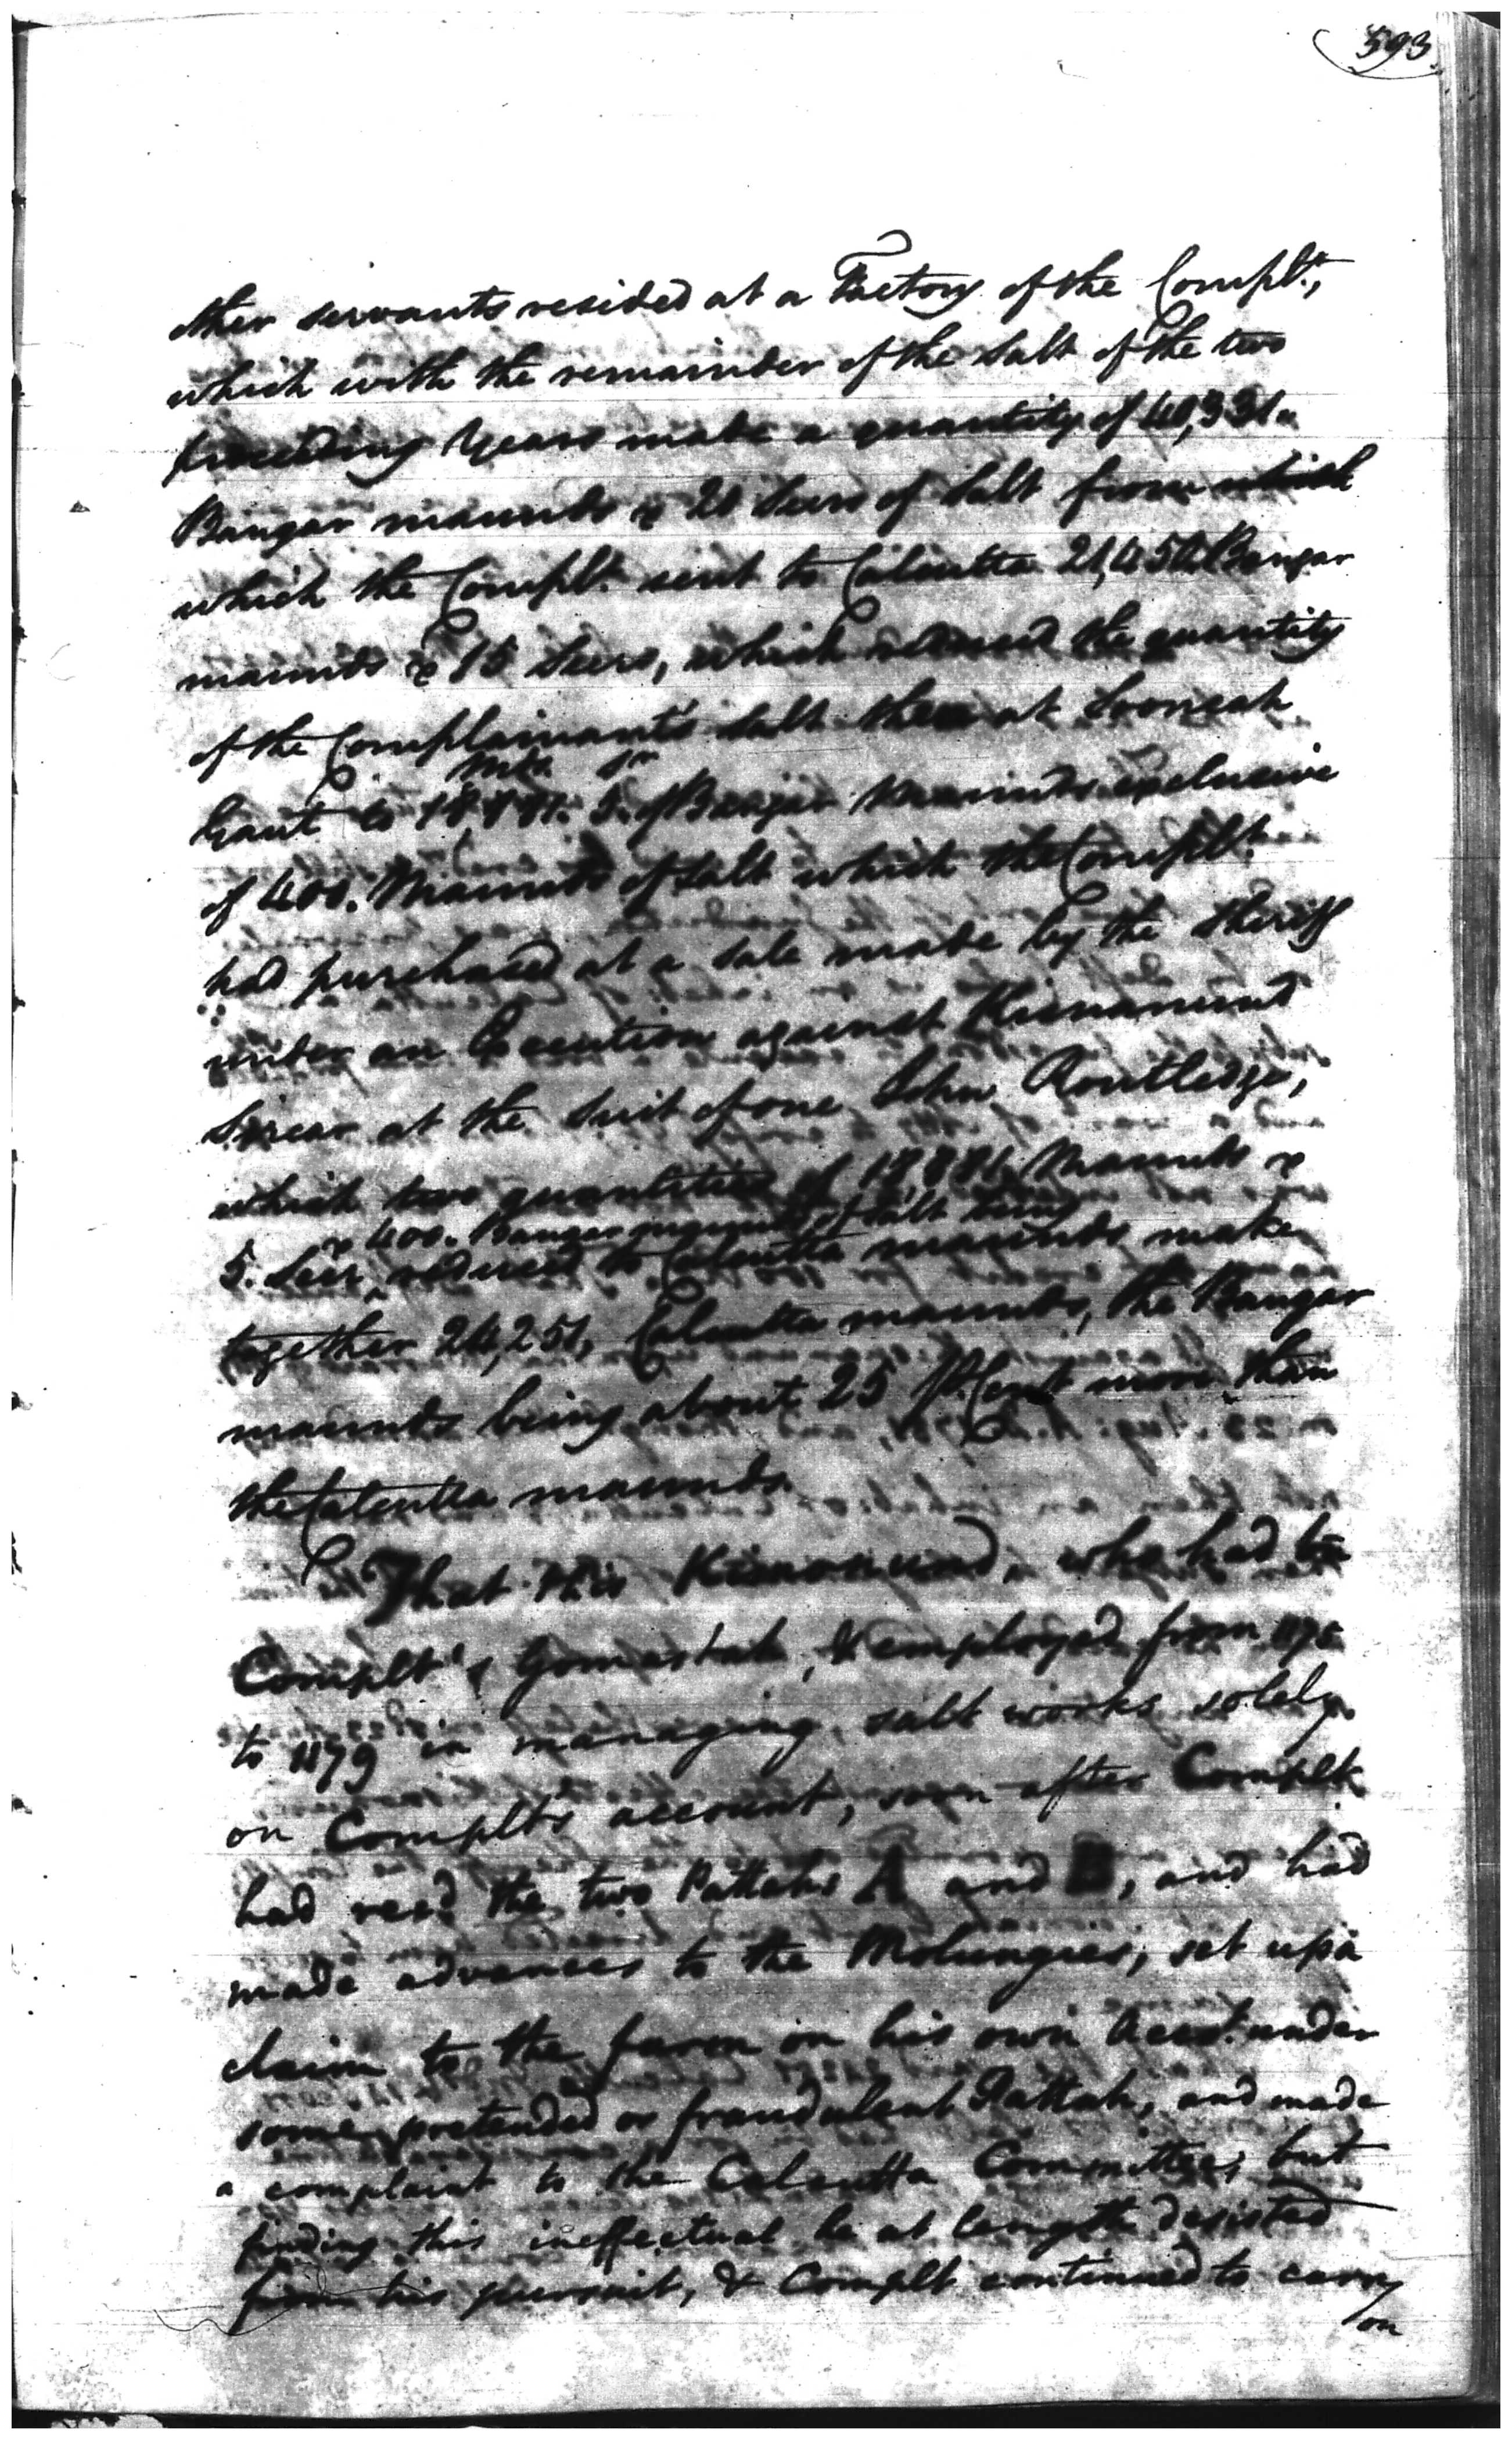 593.
other servants resided at a Factory of the Complt.,
which with the remainder of the Salt of the two
preceeding Years made a quantity of 40,331
Bangar maunds & 20 Seers of Salt from which
which the Complt. sent to Calcutta 21,450 Bangar
maunds & 15 Seers, which reduced the quantity
of the Complainants Salt then at Sooneah
mds. Sr
Gaut to 18881. 5. of Bangar Maunds exclusive
of 400. Maunds of Salt which the Complt.
had purchased at a Sale made by the Sheriff
under an Execution against Kisnanund
Sircar at the Suit of one John Routledge,
which two quantities of 18881. Maunds &
& 400. Bangar maunds of Salt being
5. Seer reduced to Calcutta maunds make
together 24,251, Calcutta maunds, the Bangar
maunds being about 25 P. Cent more than
the Calcutta maunds.
That this Kisnonund, who had be
Complt's Gomastah, & employed from 1175
to 1179 in managing salt works solely
on Complts account, soon after Complt
had recd. the two Pattahs A and B, and had
made advances to the Molungees, set up a
claim to the farm on his own Acct. under
some pretended or fraudulent Pattah, and made
a complaint to the Calcutta Committee; but
finding this ineffectual he at length desisted
from his pursuit, & Complt continued to carry
on